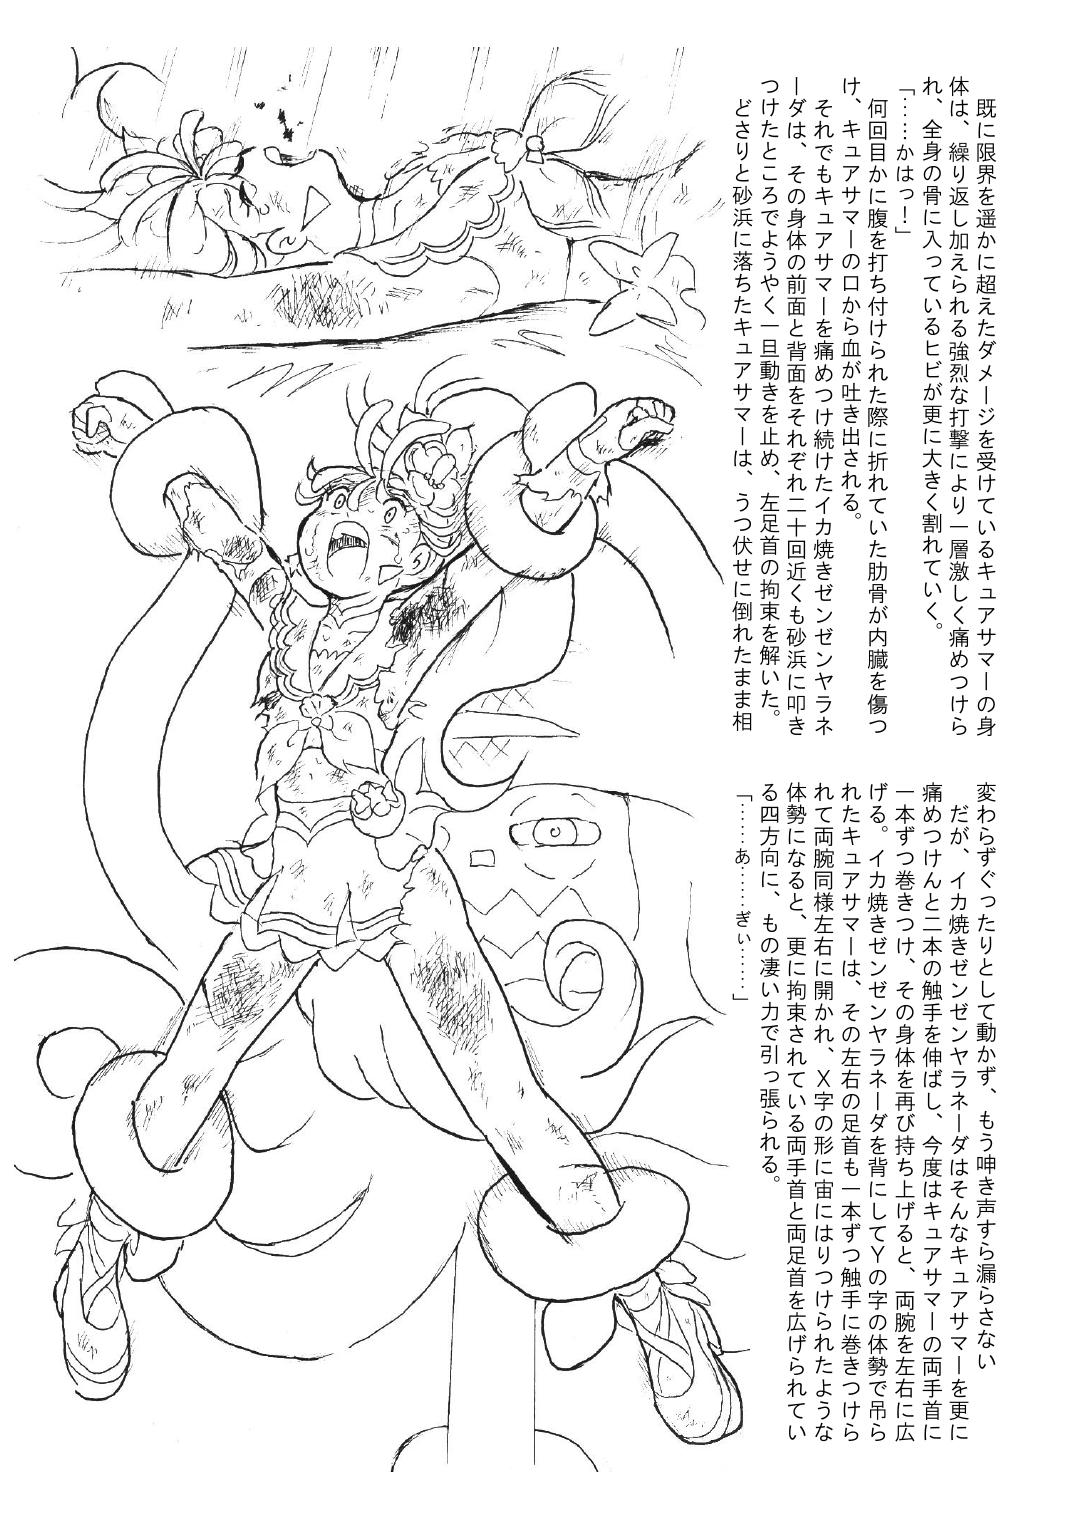 既に限界を遥かに超えたダメージを受けているキュアサマーの身
体は、繰り返し加えられる強烈な打撃により一層激しく痛めつけら
れ、全身の骨に入っているヒビが更に大きく割れていく。
「……かはっ！」
　何回目かに腹を打ち付けられた際に折れていた肋骨が内臓を傷つ
け、キュアサマーの口から血が吐き出される。
　それでもキュアサマーを痛めつけ続けたイカ焼きゼンゼンヤラネ
ーダは、その身体の前面と背面をそれぞれ二十回近くも砂浜に叩き
つけたところでようやく一旦動きを止め、左足首の拘束を解いた。
　どさりと砂浜に落ちたキュアサマーは、うつ伏せに倒れたまま相
変わらずぐったりとして動かず、もう呻き声すら漏らさない
　だが、イカ焼きゼンゼンヤラネーダはそんなキュアサマーを更に
痛めつけんと二本の触手を伸ばし、今度はキュアサマーの両手首に
一本ずつ巻きつけ、その身体を再び持ち上げると、両腕を左右に広
げる。イカ焼きゼンゼンヤラネーダを背にしてＹの字の体勢で吊ら
れたキュアサマーは、その左右の足首も一本ずつ触手に巻きつけら
れて両腕同様左右に開かれ、Ｘ字の形に宙にはりつけられたような
体勢になると、更に拘束されている両手首と両足首を広げられてい
る四方向に、もの凄い力で引っ張られる。
「……あ……ぎぃ……」